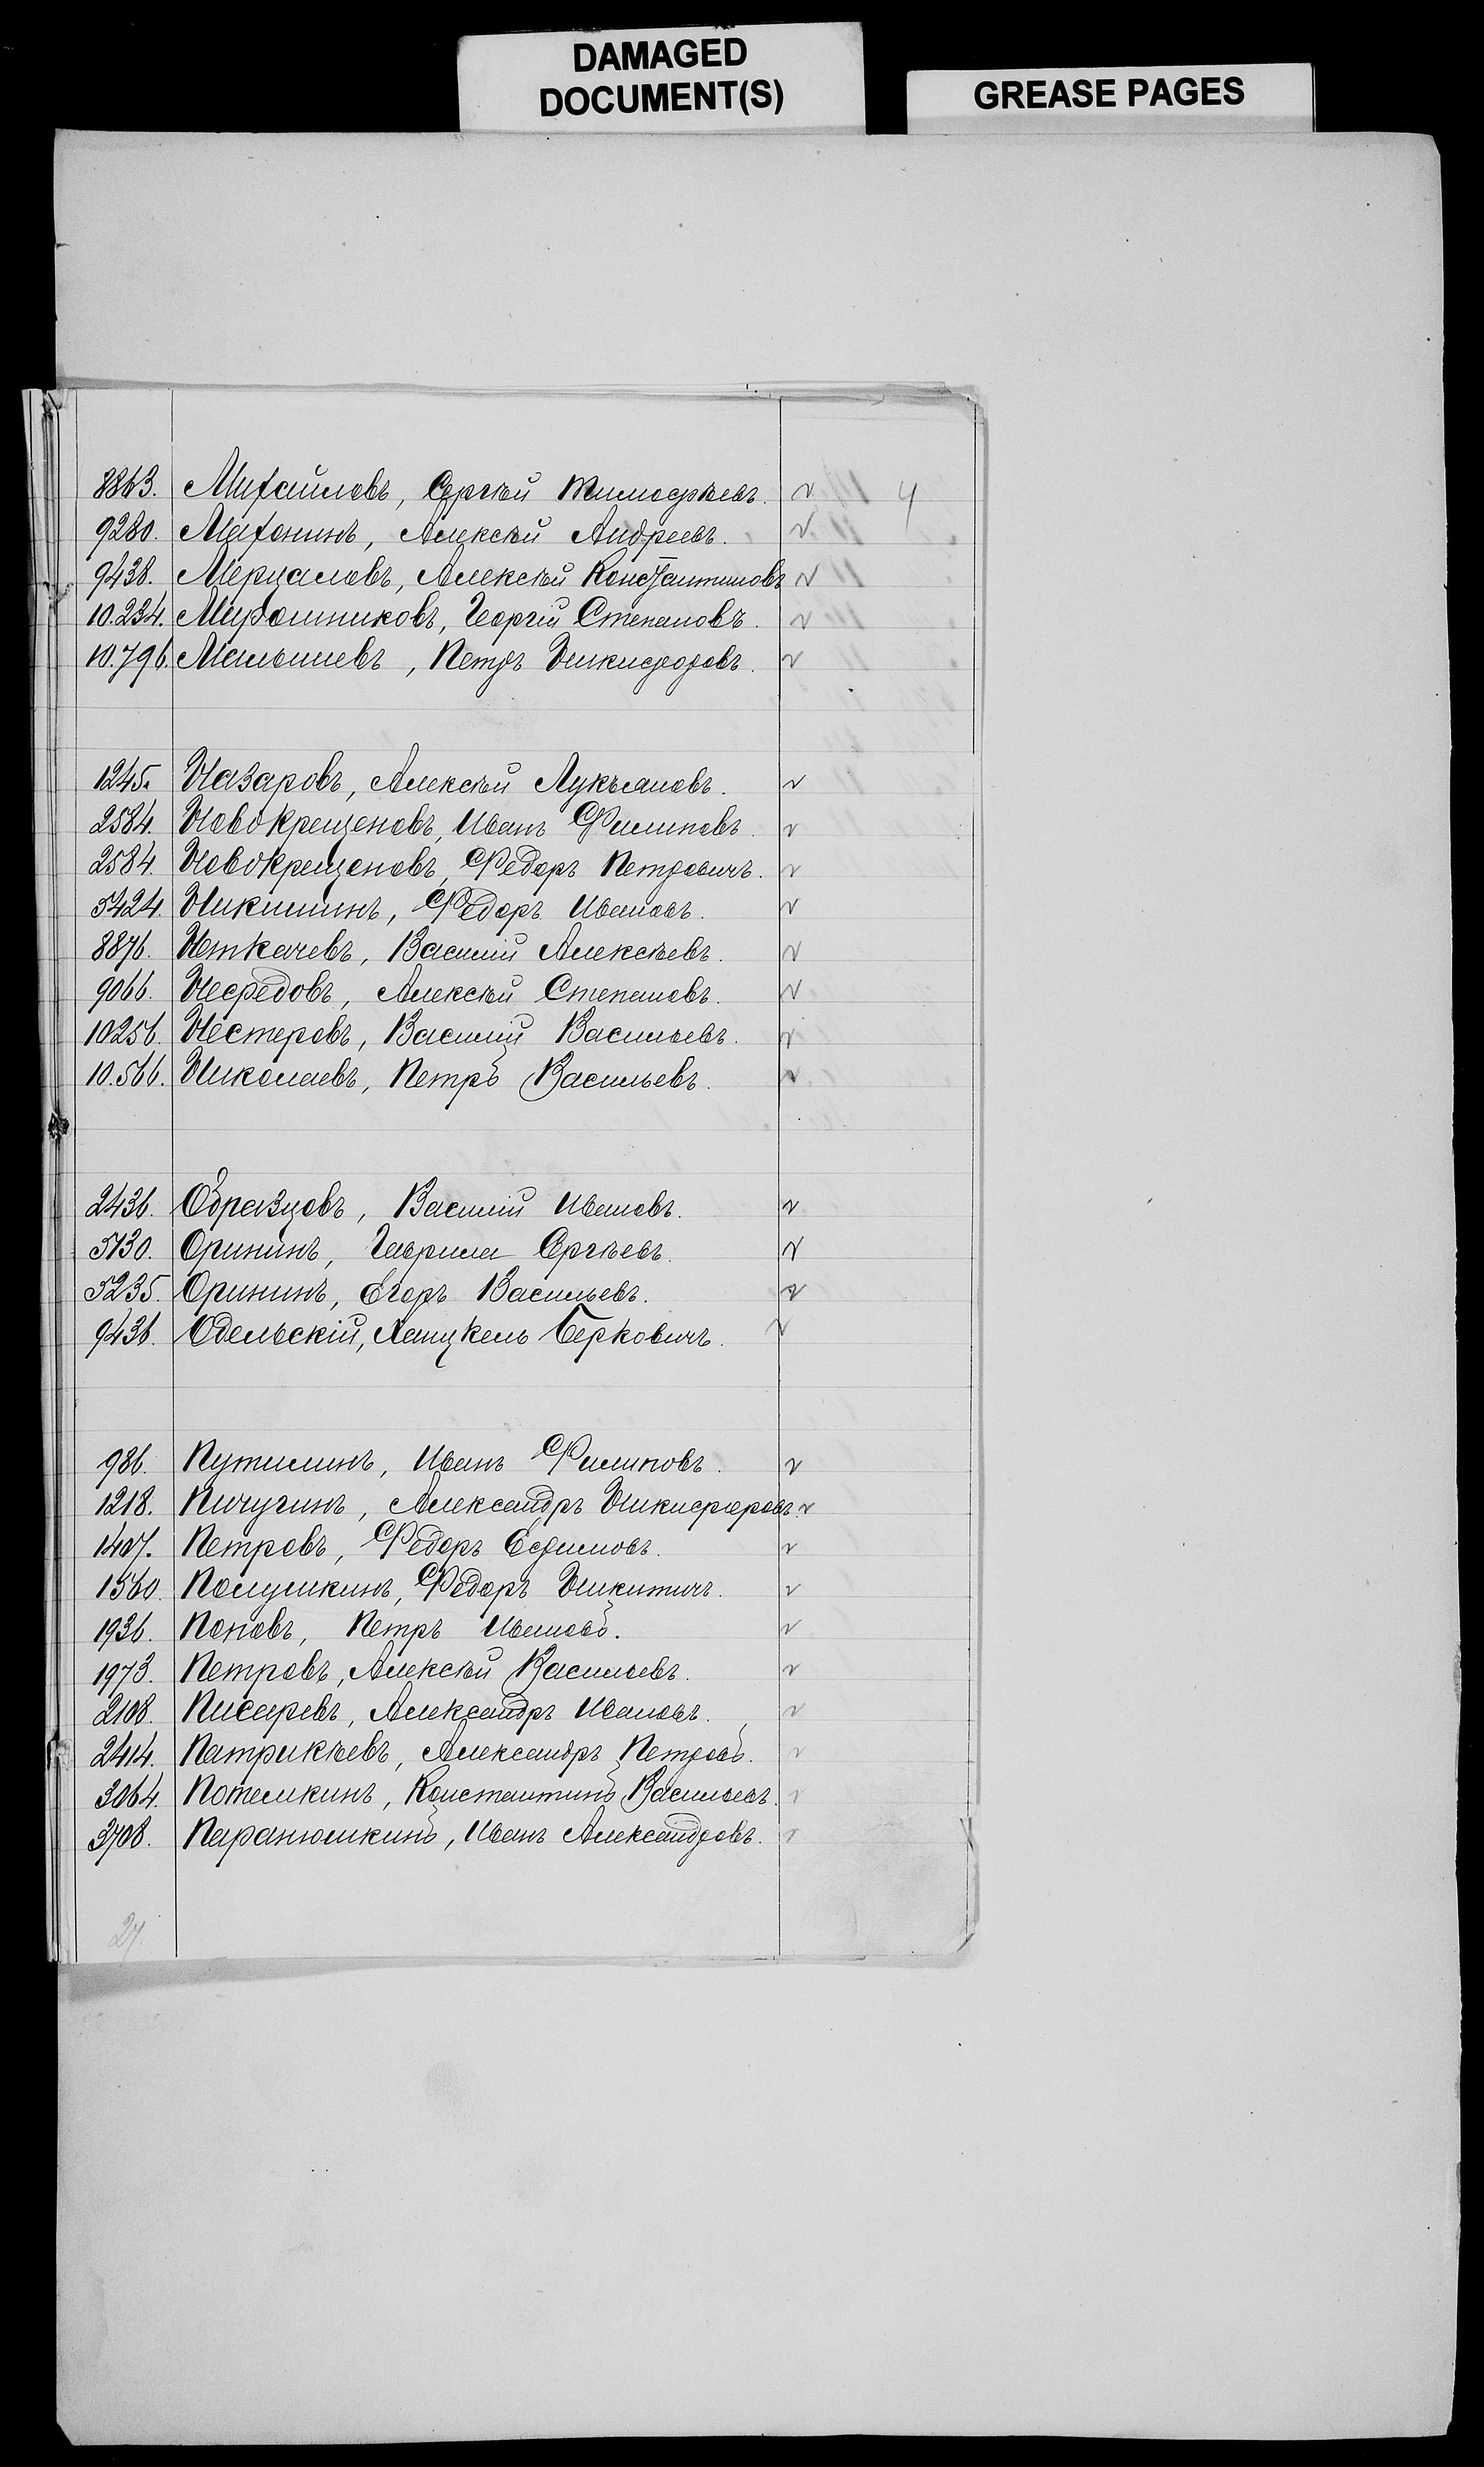 DAMAGED
DOCUMENT(S)
GREASE PAGES
8863. Михайловъ, Сергѣй Тимофѣевъ. v 4
9280. Махонинъ, Алексѣй Андреевъ. v
9438. Мерцаловъ, Алексѣй Константиновъ v
10.234. Мирошниковъ, Георгій Степановъ. v
10.796. Малышевъ, Петръ Никифоровъ. v
1245. Назаровъ, Алексѣй Лукьяновъ. v
2584. Новокрещеновъ, Иванъ Филиповъ. v
2584. Новокрещеновъ, Федоръ Петровичъ. v
5424. Никишинъ, Федоръ Ивановъ. v
8876. Неткачевъ, Василій Алексѣевъ. v
9066. Нефедовъ, Алексѣй Степановъ. v
10256. Нестеровъ, Василій Васильевъ. v
10.566. Николаевъ, Петръ Васильевъ. v
2436. Образцовъ, Василій Ивановъ. v
5130. Орининъ, Гаврила Сергѣевъ. v
5235. Орининъ, Егоръ Васильевъ. v
9436. Одельскій, Ханцкель Берковичъ. v
986. Путилинъ, Иванъ Филиповъ. v
1218. Пичугинъ, Александръ Никифоровъ. v
1407. Петровъ, Федоръ Ефимовъ. v
1560. Полушкинъ, Федоръ Никитичъ. v
1936. Поповъ, Петръ Ивановъ. v
1973. Петровъ, Алексѣй Васильевъ. v
2108. Писаревъ, Александръ Ивановъ. v
2414. Патрикѣевъ, Александръ Петровъ. v
3064. Потемкинъ, Константинъ Васильевъ. v
3708. Паранюшкинъ, Иванъ Александровъ. v
27.